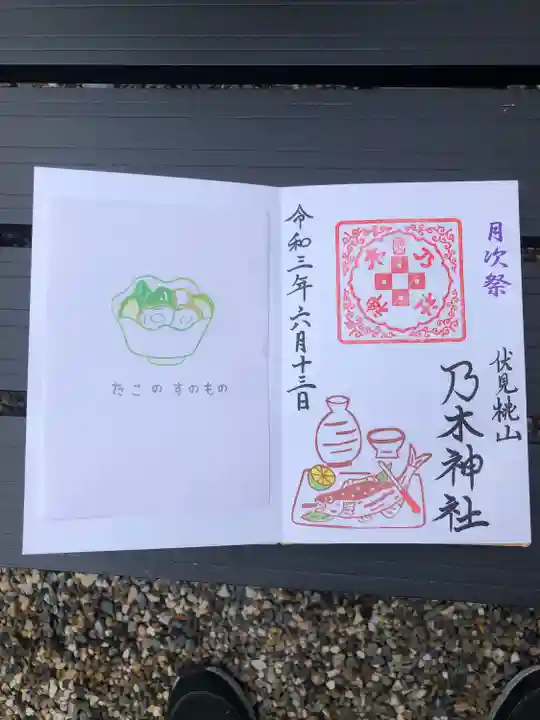 月次祭
伏見桃山
乃木神社
令和三年六月十三日
たこのすのもの